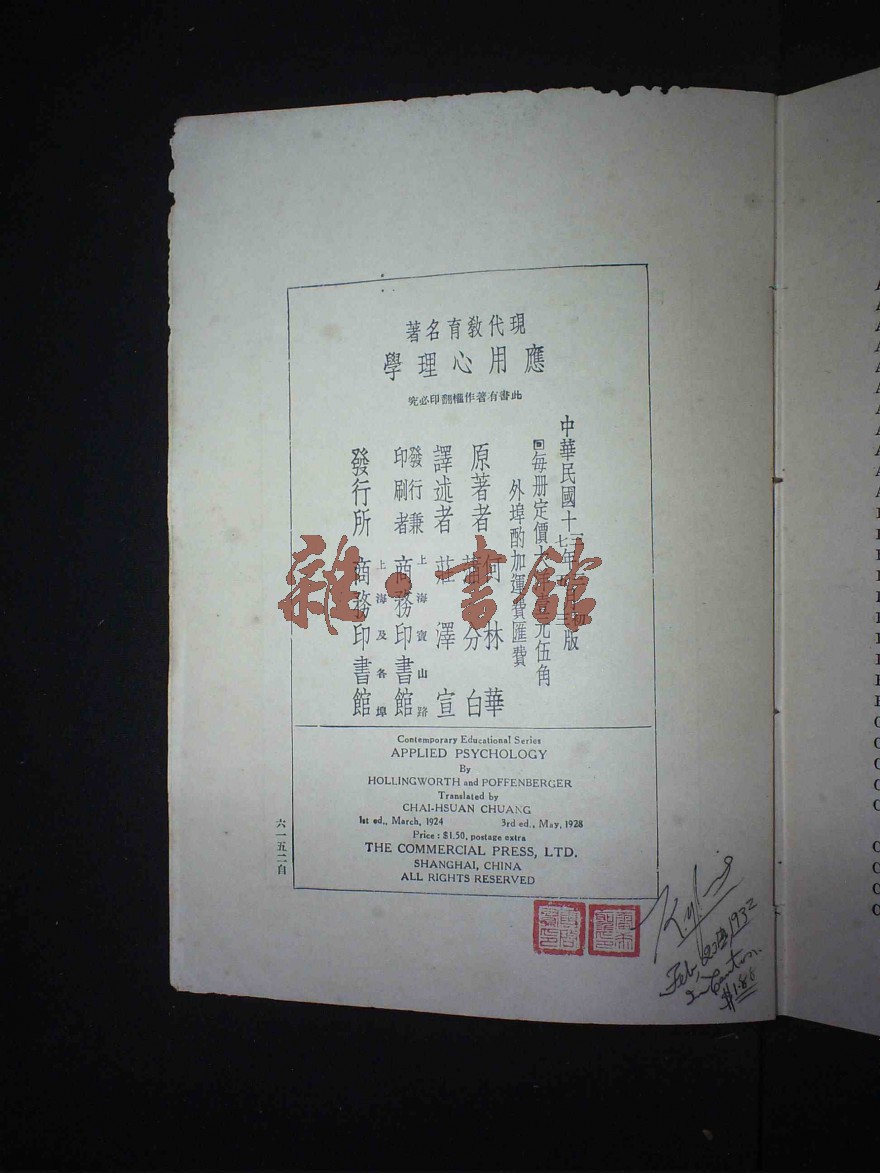 現代教育名著
應用心理學
此書有著作權翻印必究
中華民國十三年
七
初版
三版
回每册定價大洋壹元伍角
外埠酌加運費匯費
原著者 何林華
蒲分白
譯述者 莊澤宣
發行兼印刷者 上海寶山路 商務印書館
發行所 上海及各埠 商務印書館
Contemporary Educational Series
APPLIED PSYCHOLOGY
By
HOLLINGWORTH and POFFENBERGER
Translated by
CHAI-HSUAN CHUANG
1st ed., March, 1924 3rd ed., May, 1928
Price : $1.50, postage extra
THE COMMERCIAL PRESS, LTD.
SHANGHAI, CHINA
ALL RIGHTS RESERVED
六一五二自
雜·書館
Feb 1932
In Canton.
$1.86